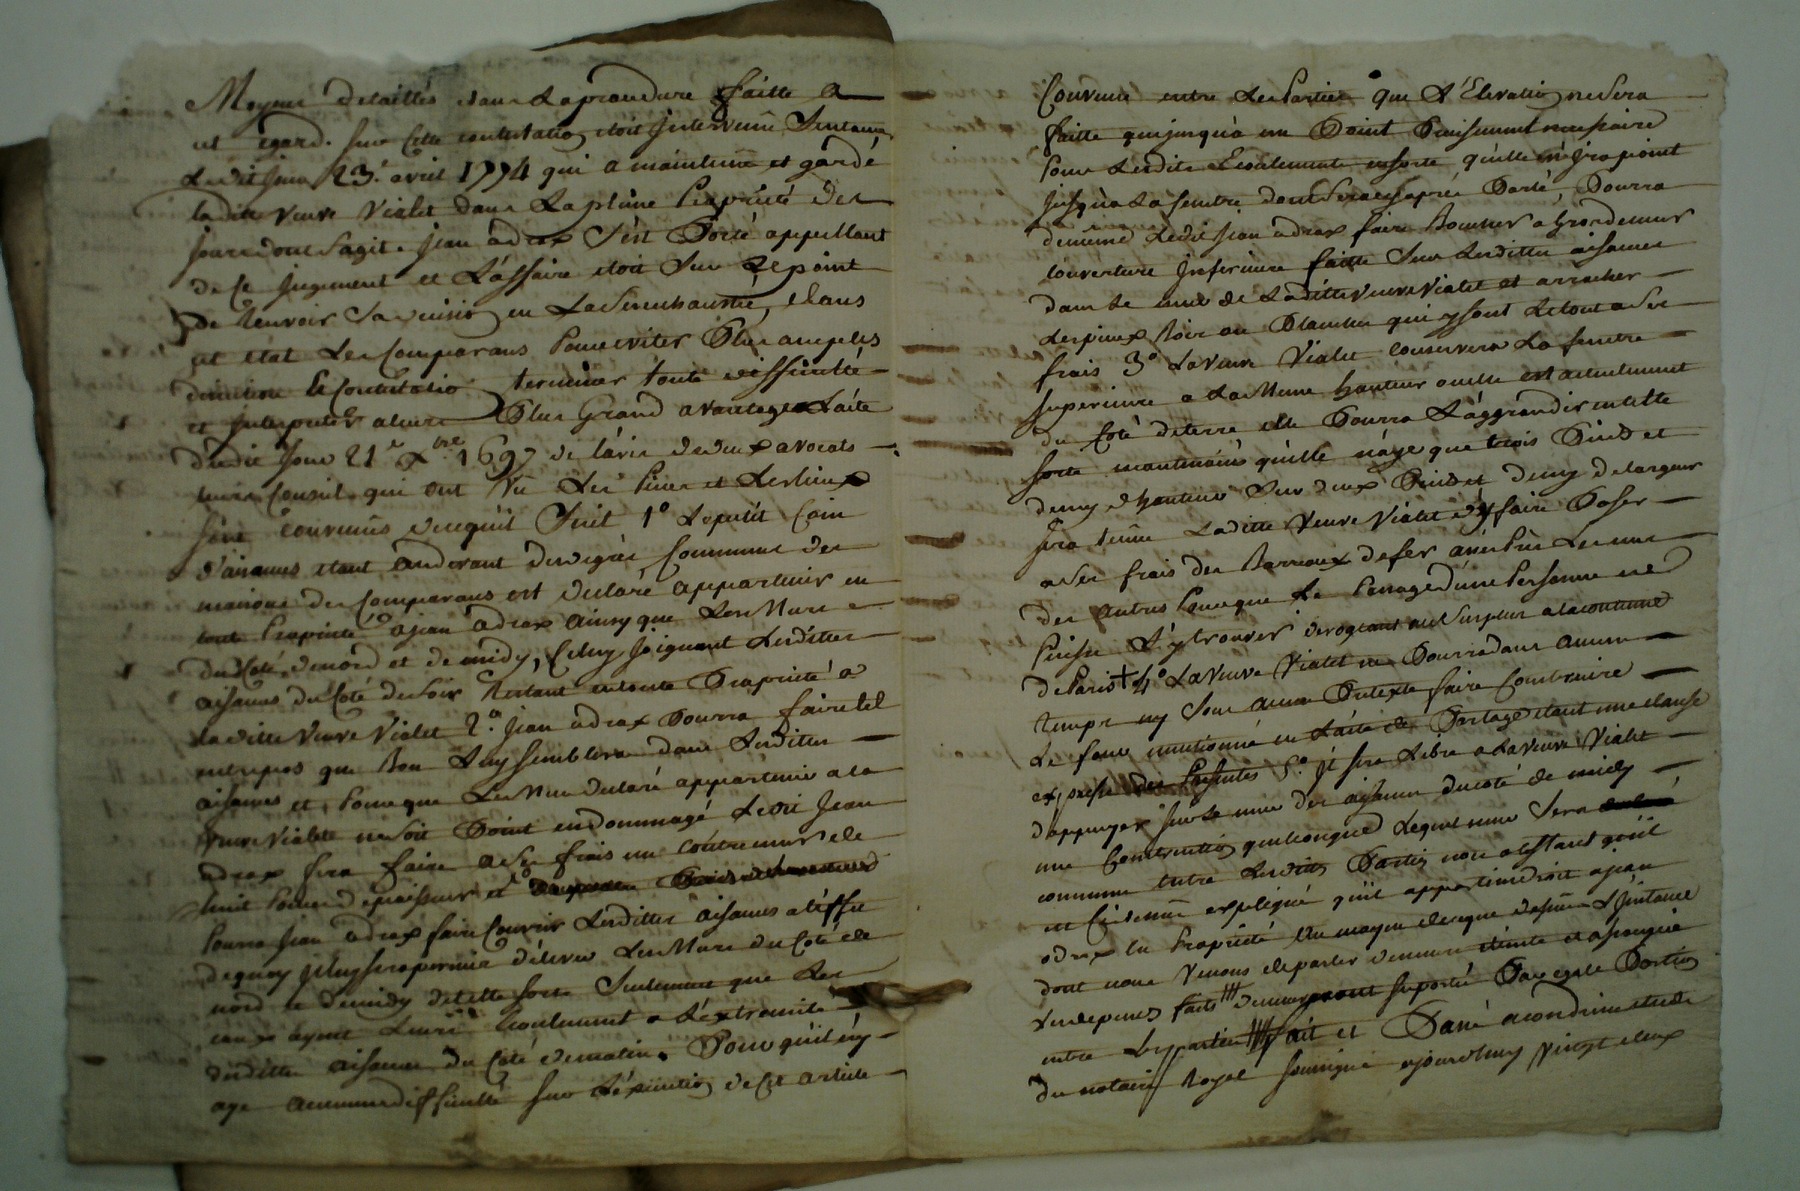 Moyens detaillés dans La procedure faitte a
cet egard. sur Cette contestation etoit Intervenue Sentence
Ledit jour 23.e avril 1774 qui a maintenue et gardé
laditte veuve Vialet dans La pleine Propriété des
jours dont Sagit. jean adrax S'est Porté appellant
de Ce jugement et L'affaire etoit Sur Le point
de Revenir en La Senechaussée, dans
cet etat Les Comparans Pour eviter Plus amples
La Contestation terminer toute difficulté
et Interpreter a leur Plus Grand avantage L'acte
dudit Jour 21e Xbre 1697 de l'avis de deux avocats
leurs Conseil qui ont Vû Les Pieces et Les lieux
Sont convenus de ce qu'il Suit 1º Le petit Coin
d'aisances etant au devant du degrés Commun des
maisons des Comparans est declaré appartenir en
toute Propriété a jean adrax ainsy que Les Murs
du Coté de nord et de midy, Celuy joignant Lesdittes
aisances du Coté de soir Restant en toute Propriété a
Laditte Veuve Vialet 2º. jean adrax Pourra faire tel
entrepos que Bon Luy Semblera dans Lesdittes
aisances et Pour que Le Mur declaré appartenir a la
Veuve Vialet ne Soit Point endommagé Ledit Jean
adrax fera faire a Ses frais un Contre mur de
huit Pouces d'epaisseur et
Pourra jean adrax faire Couvrir Lesdittes aisances a l'effet
de quoy il luy Sera permis d'elever Les Murs du Coté de
nord et de midy de telle Sorte Seulement que Les
eaux ayent Leur Ecoulement a L'extremité
desdittes aisances du Coté de matin. Pour qu'il n'y
aye aucune difficulté Sur L'execution de Cet article
Convenu entre Les Parties que L'Elevation ne Sera
faitte que jusqu'a un Point Precisement necessaire
Pour Ledit Ecoulement en sorte qu'elle n'ira point
jusqu'a La fenetre dont Sera cy apres Parlé, Pourra
de meme Ledit jean adrax faire Boucher
L'ouverture Inferieure faitte Sur Lesdittes aisances
dans Le mur de Laditte Veuve Vialet et arracher
Les pieux Bois ou Planches qui y sont Le tout a Ses
frais 3º La Veuve Vialet Conservera La fenetre
Superieure a La Meme hauteur ou elle est actuellement
du Coté de terre elle Pourra L'aggrandir en telle
Sorte neantmoins qu'elle n'aye que trois Pieds et
demy d'hauteur Sur deux Pieds et demy de largeur
Sera tenue Laditte Veuve Vialet d'y faire Poser
a Ses frais des Barreaux de fer Les uns
des autres Pour que Le Passage d'une Personne ne
Puisse S'y trouver derogeant au Surplus a la coutume
de Paris + 4º La Veuve Vialet ne Pourra dans aucun
temps ny Sous aucun Pretexte faire Construire
Le four mentionné en L'acte de Partage etant une clause
expresse des Presentes 5º. il Sera Libre a La Veuve Vialet
d'appuyer Sur Le mur des aisances du coté de midy
une Construction quelconque Lequel mur Sera
commun Entre Lesdittes Parties non obstant qu'il
ait Cy dessus expliqué qu'il appartiendroit a jean
adrax en Propriété Au moyen de ce que dessus L'instance
dont nous Venons de parler demeure eteinte et assoupie
Les depens faits demeureront Suporté Par egale Portion
entre Les parties fait et Passé a
du notaire Royal Soussigné ajourd'huy Vingt deux